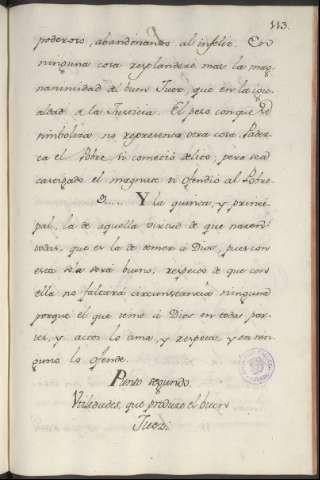 113.
poderoso, abandonando al infeliz. En
ninguna cosa resplandece mas la mag
nanimidad del buen Juez, que en la igu
aldad a la Justicia. El peso con que se
simboliza no representa otra cosa. Padez
ca el Pobre, si cometió delito, pero sea
castigado el magnate si ofendió al Pobre.
Y la quinta, y princi
pal, la de aquella virtud de que
todas, que es la de temer á Dios, pues con
esta sola será bueno, respecto de que con
ella no faltará circunstancia ninguna
porque el que teme á Dios en todas par
tes, y actos lo ama, y respeta, y en nin
guno lo ofende.
Punto segundo.
Utilidades, que produce el buen
Juez.